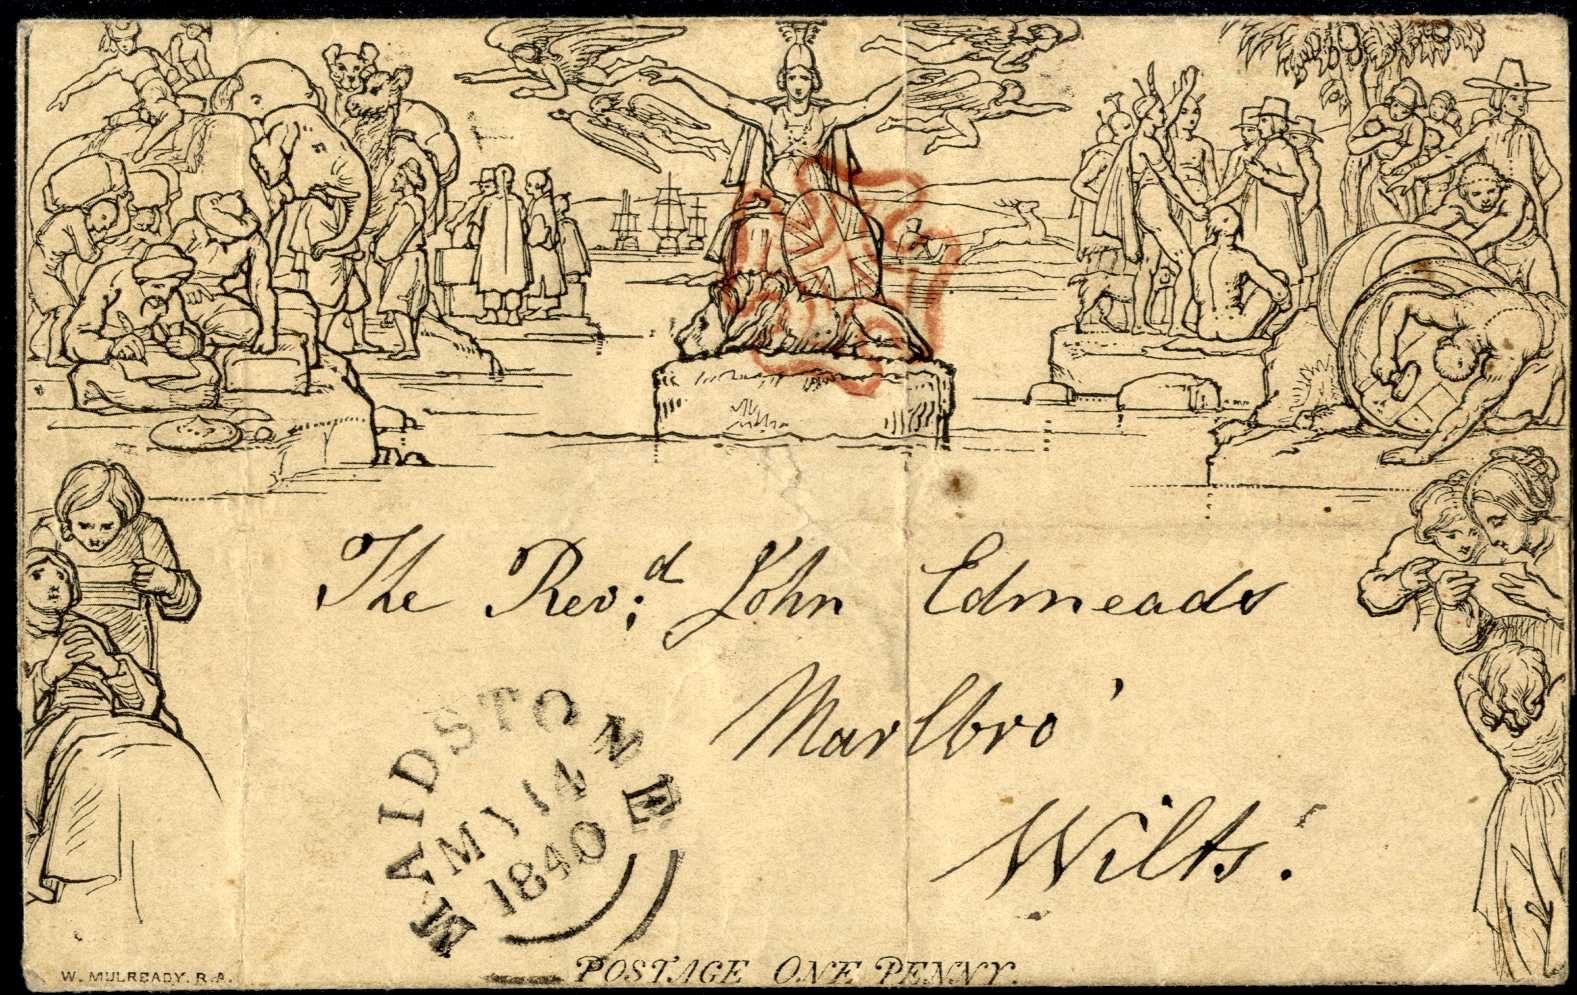 The Rev:d John Edmeads
Marlbro'
Wilts.
MAIDSTONE
MY 14
1840
POSTAGE ONE PENNY.
W. MULREADY. R.A.